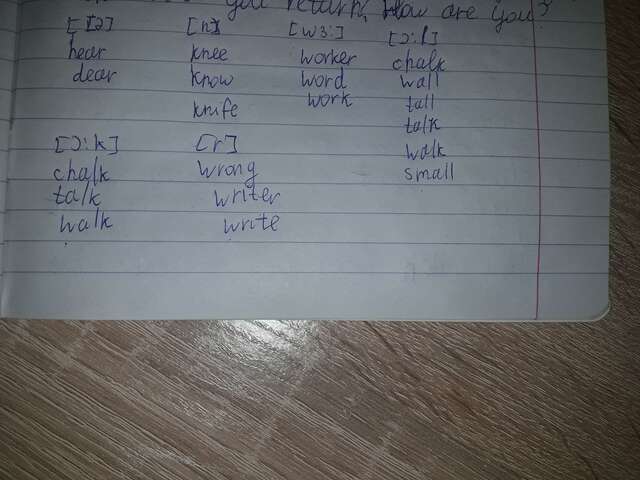 you return, How are you?
[ɪə] [n] [wɜ:] [ɔ:l]
hear knee worker chalk
dear know word wall
knife work tall
talk
[ɔ:k] [r] walk
chalk wrong small
talk writer
walk write